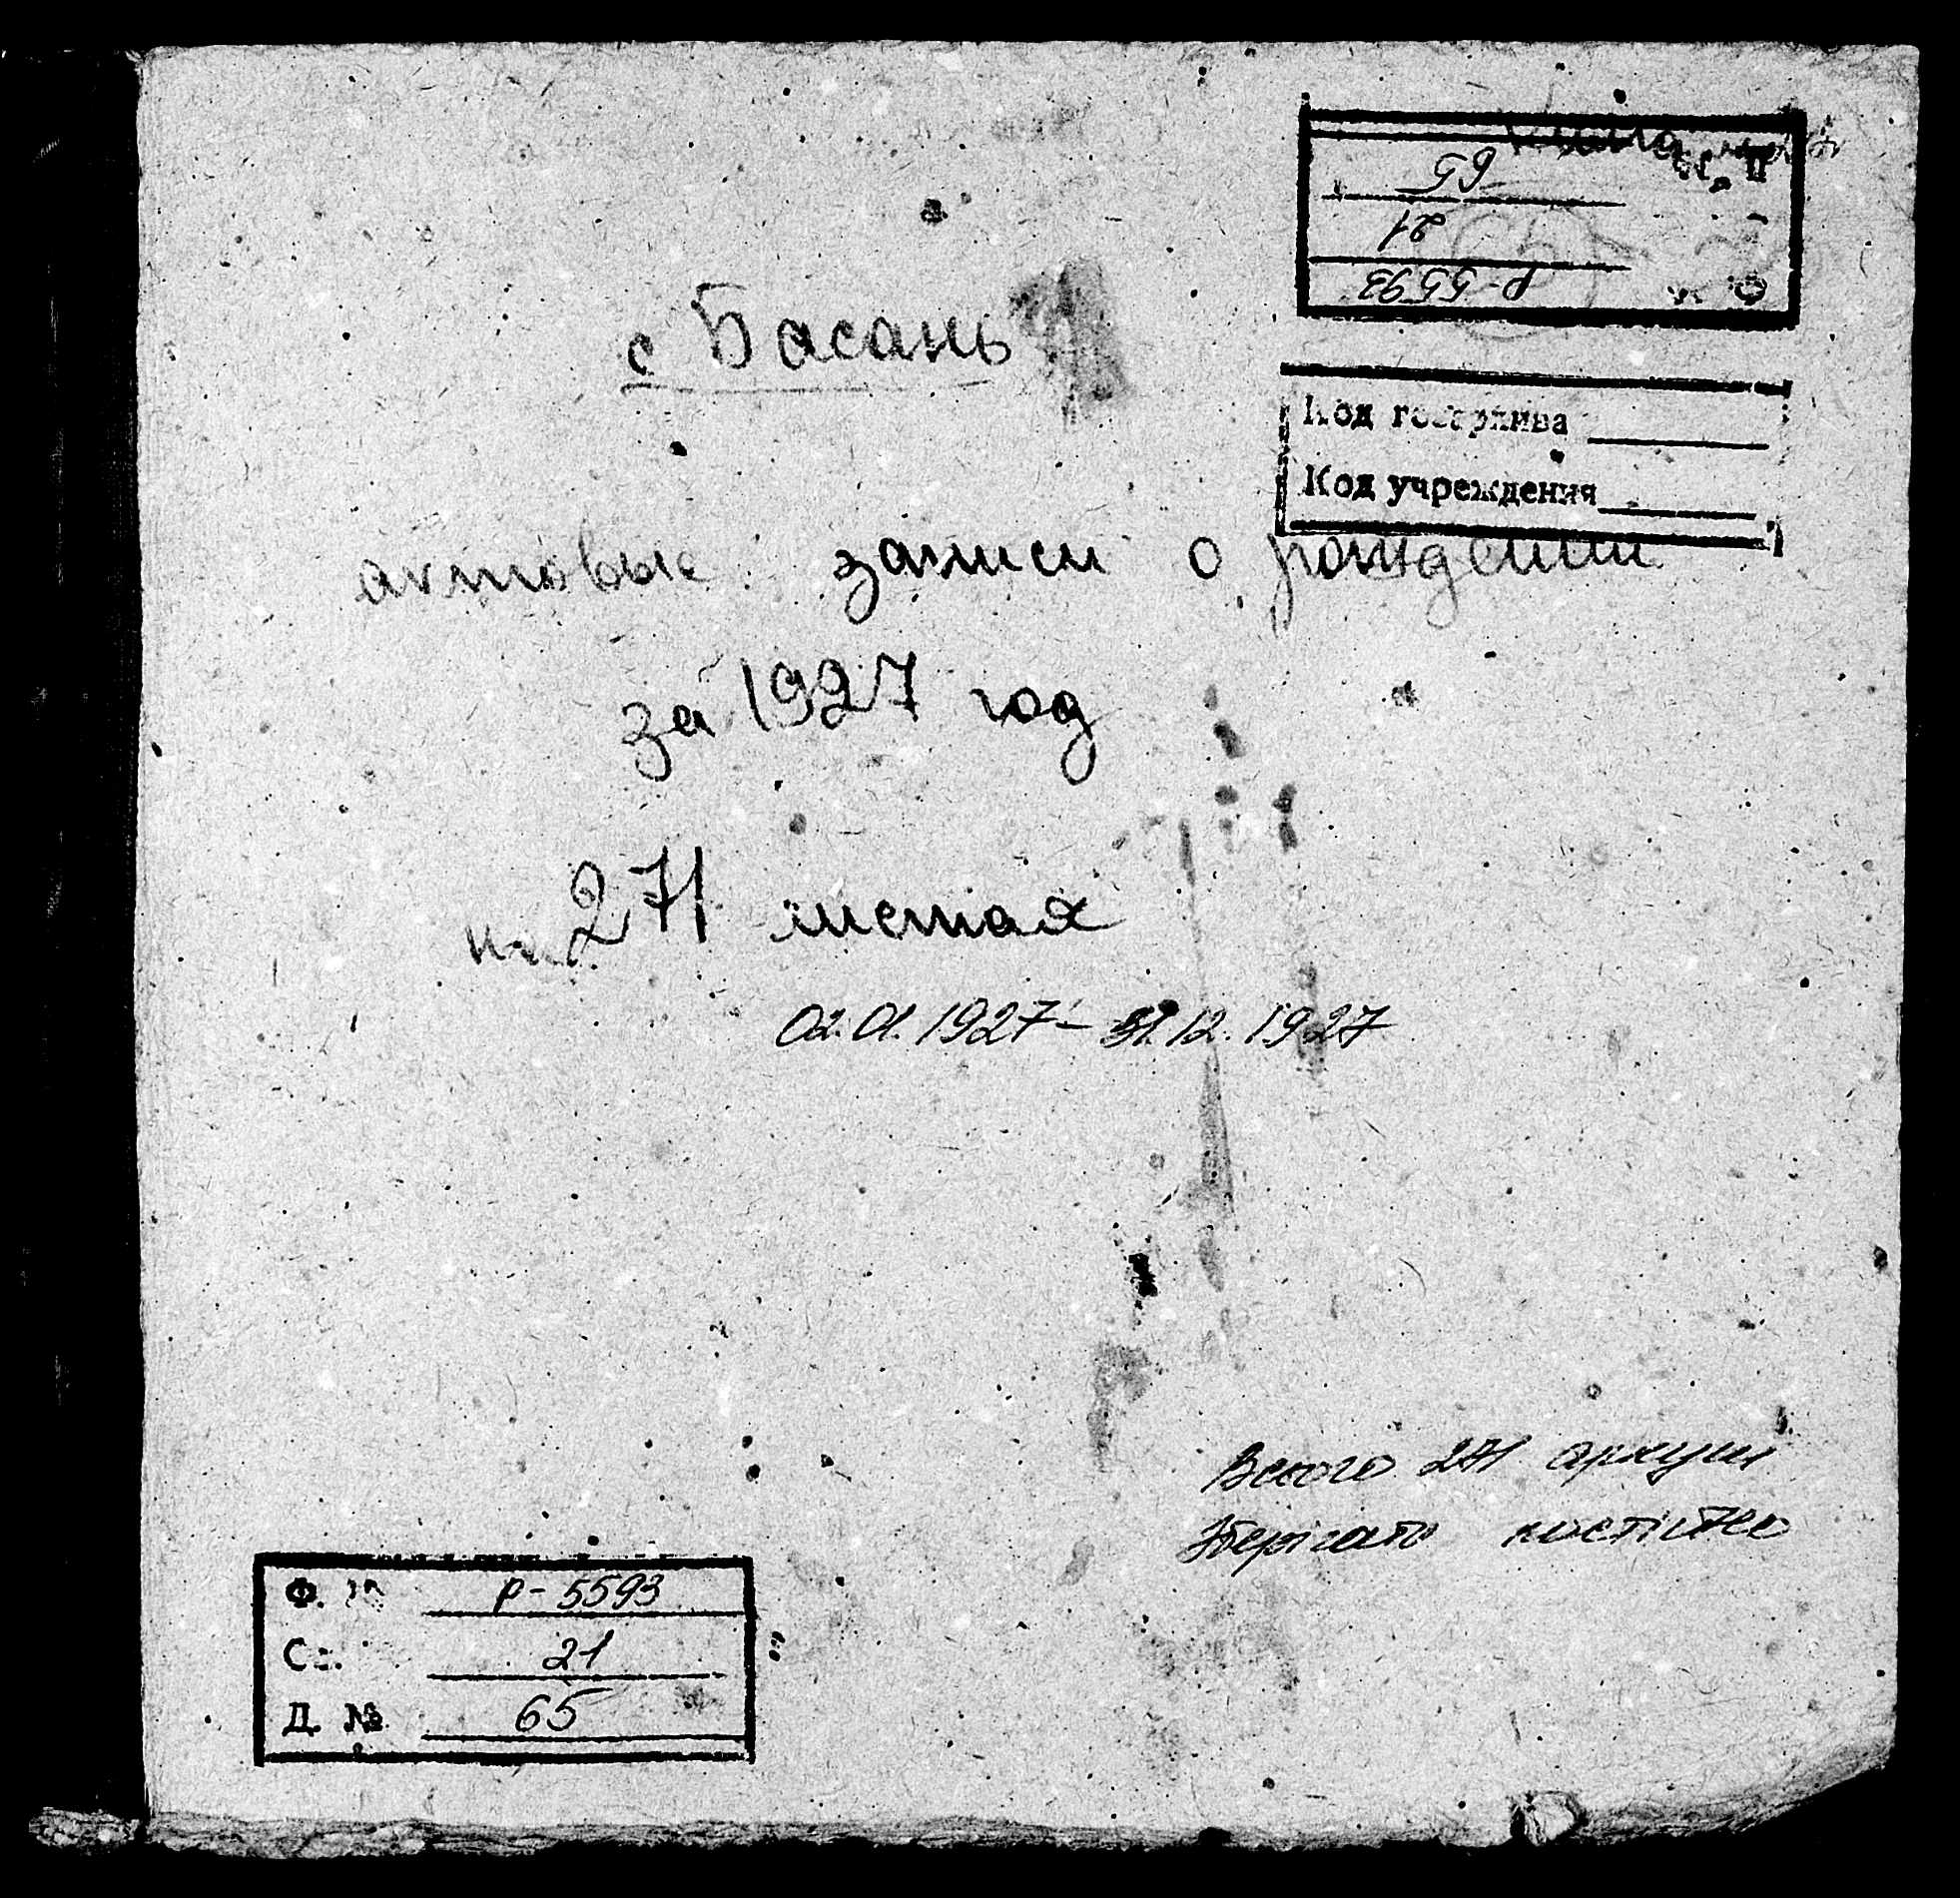 65
21
Р-5593
с Басань
Код госархива
Код учреждения
актовые записи о рождении
за 1927 год
на 271 листах
02.01.1927 - 31.12.1927
Всього 271 аркуш
Зберігати постійно
Ф. № Р-5593
Оп. 21
Д. № 65